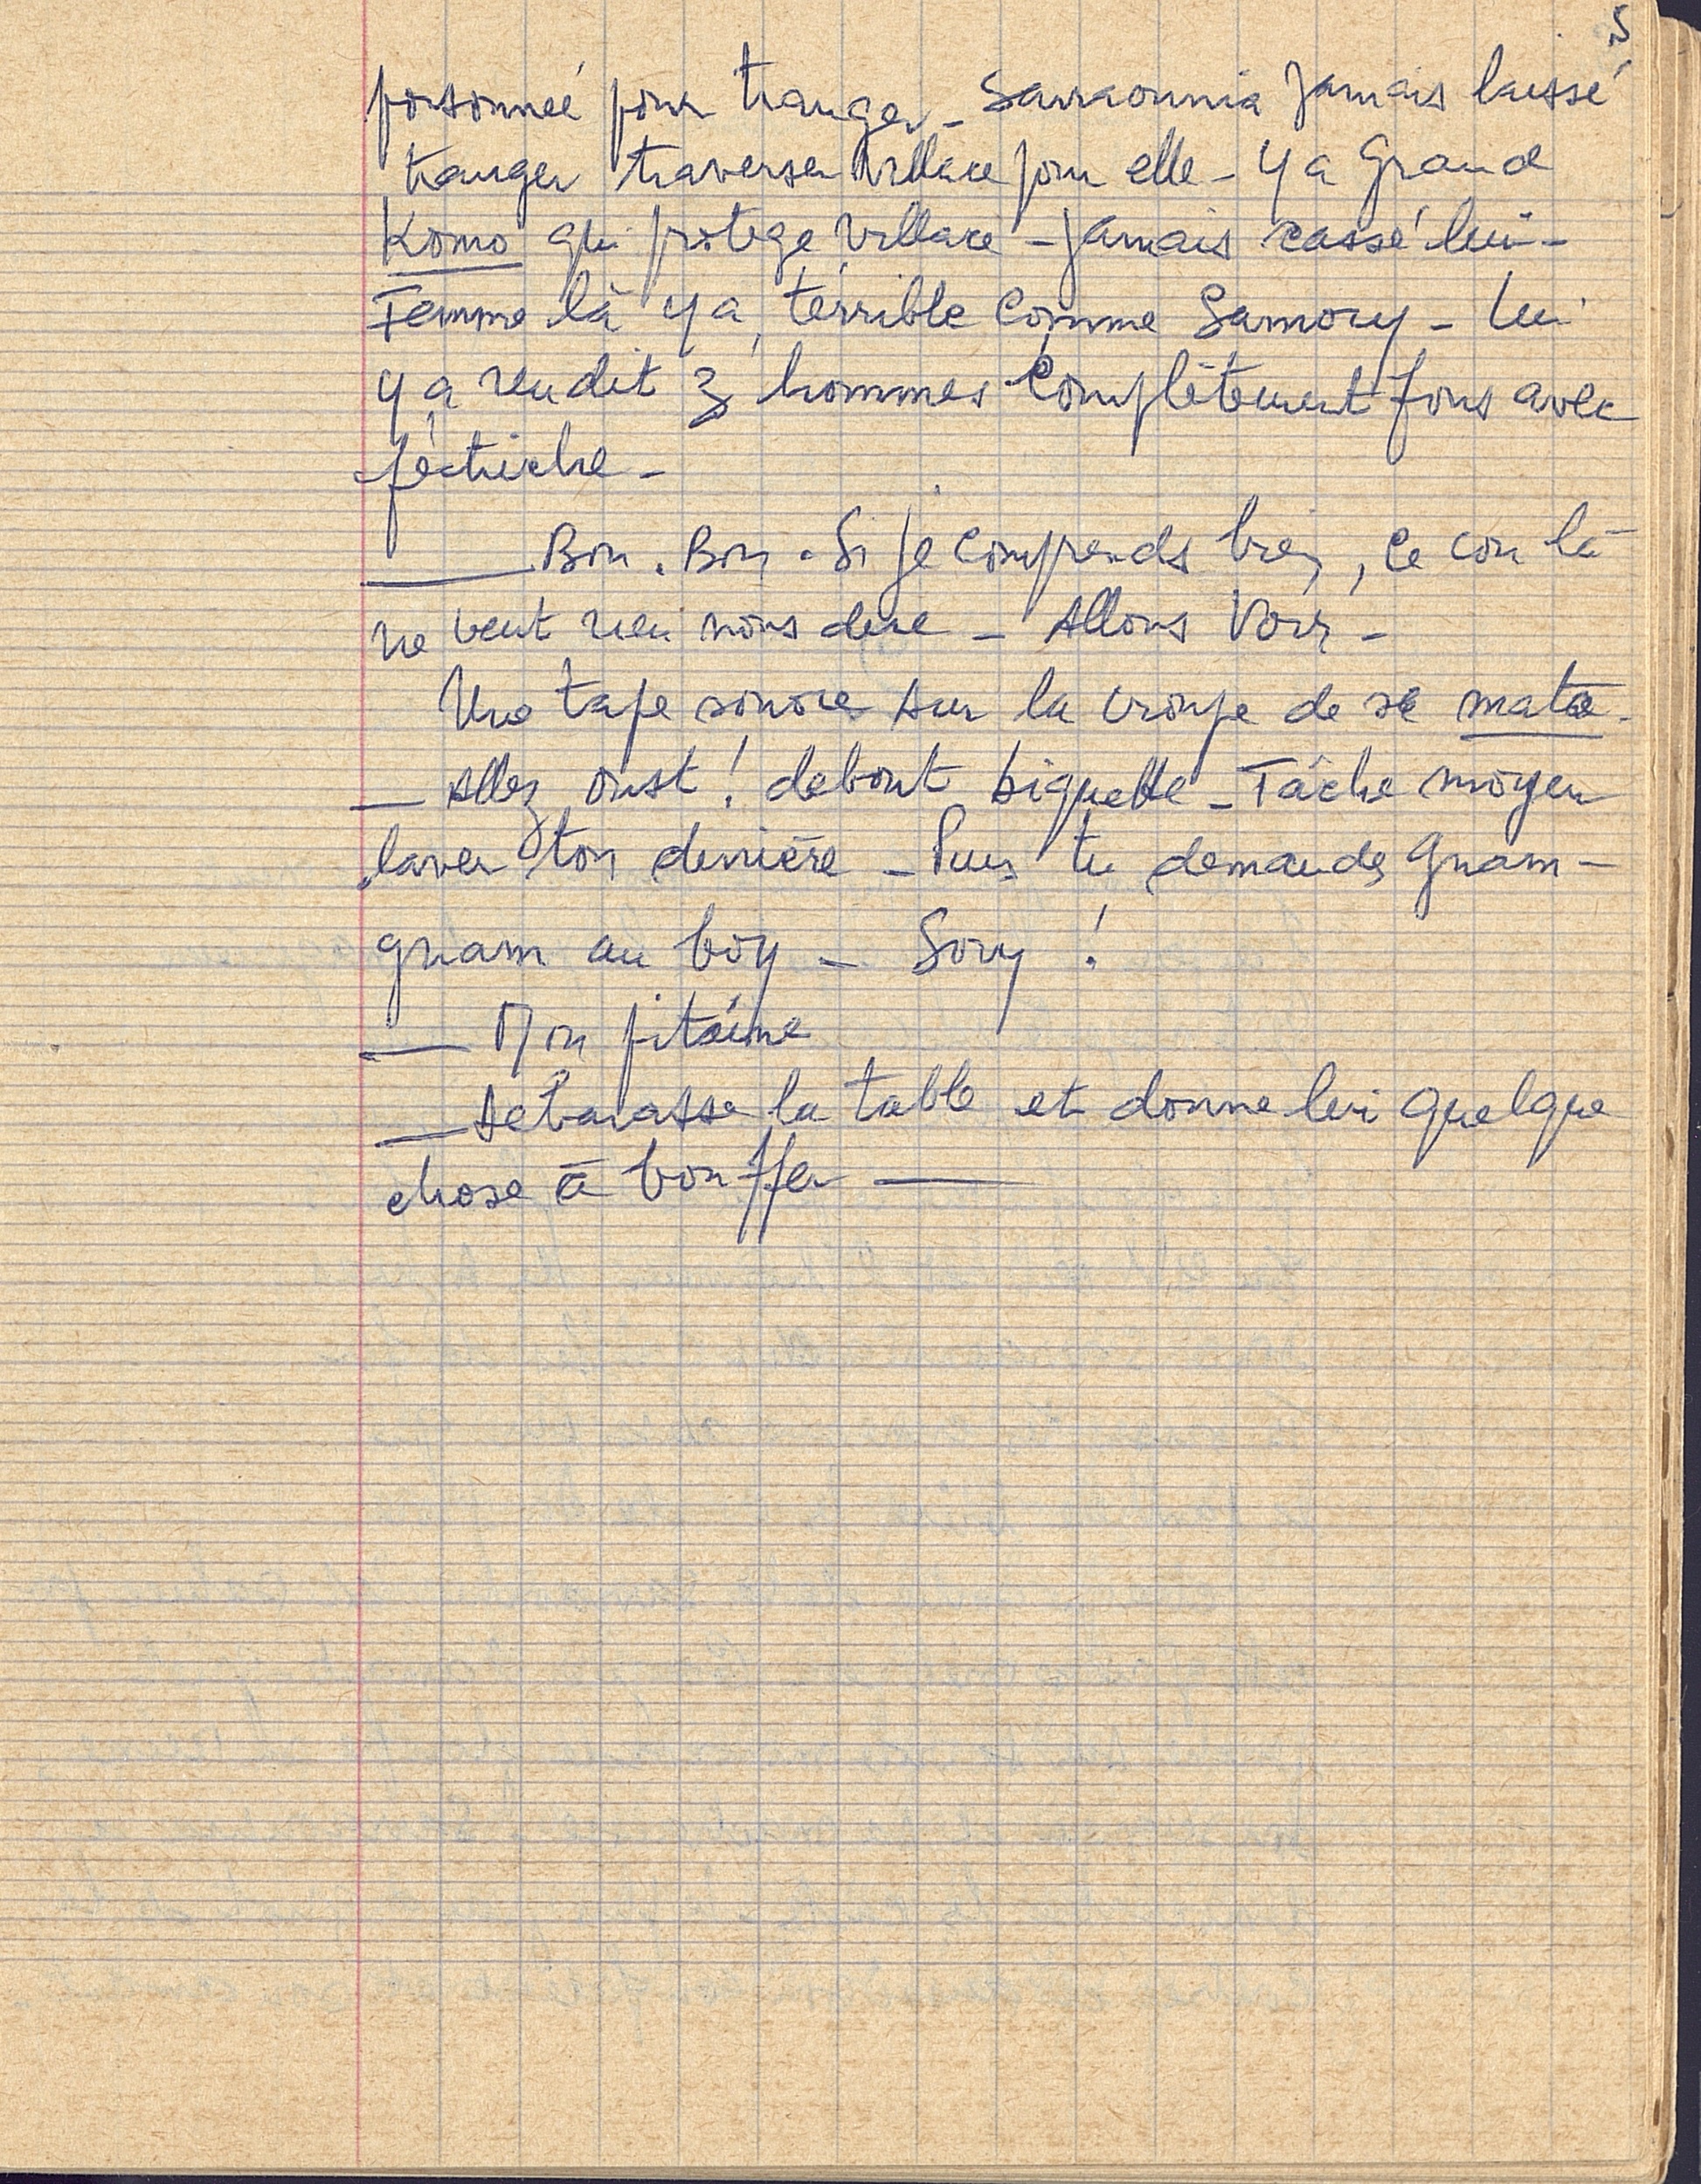 5
poisonneé pour tranger - Sarraounia jamais laissé
tranger traverser village pour elle - Y a Grand
Komo qui protege village - jamais cassé lui -
Femme là y a terrible comme Samory - Lui
y a rendit 3 hommes complètement fous avec
fétiche -
— Bon. Bon. Si je comprends bien, ce con là
ne veut rien nous dire - Allons voir -
Une tape sonore sur la croupe de sa mata.
— Allez oust! debout biquette - Tâche moyen
laver ton derrière - Puis tu demandes gnam-
gnam au boy - Sory !
— Mon pitaine
— Debarasse la table et donne lui quelque
chose à bouffer —